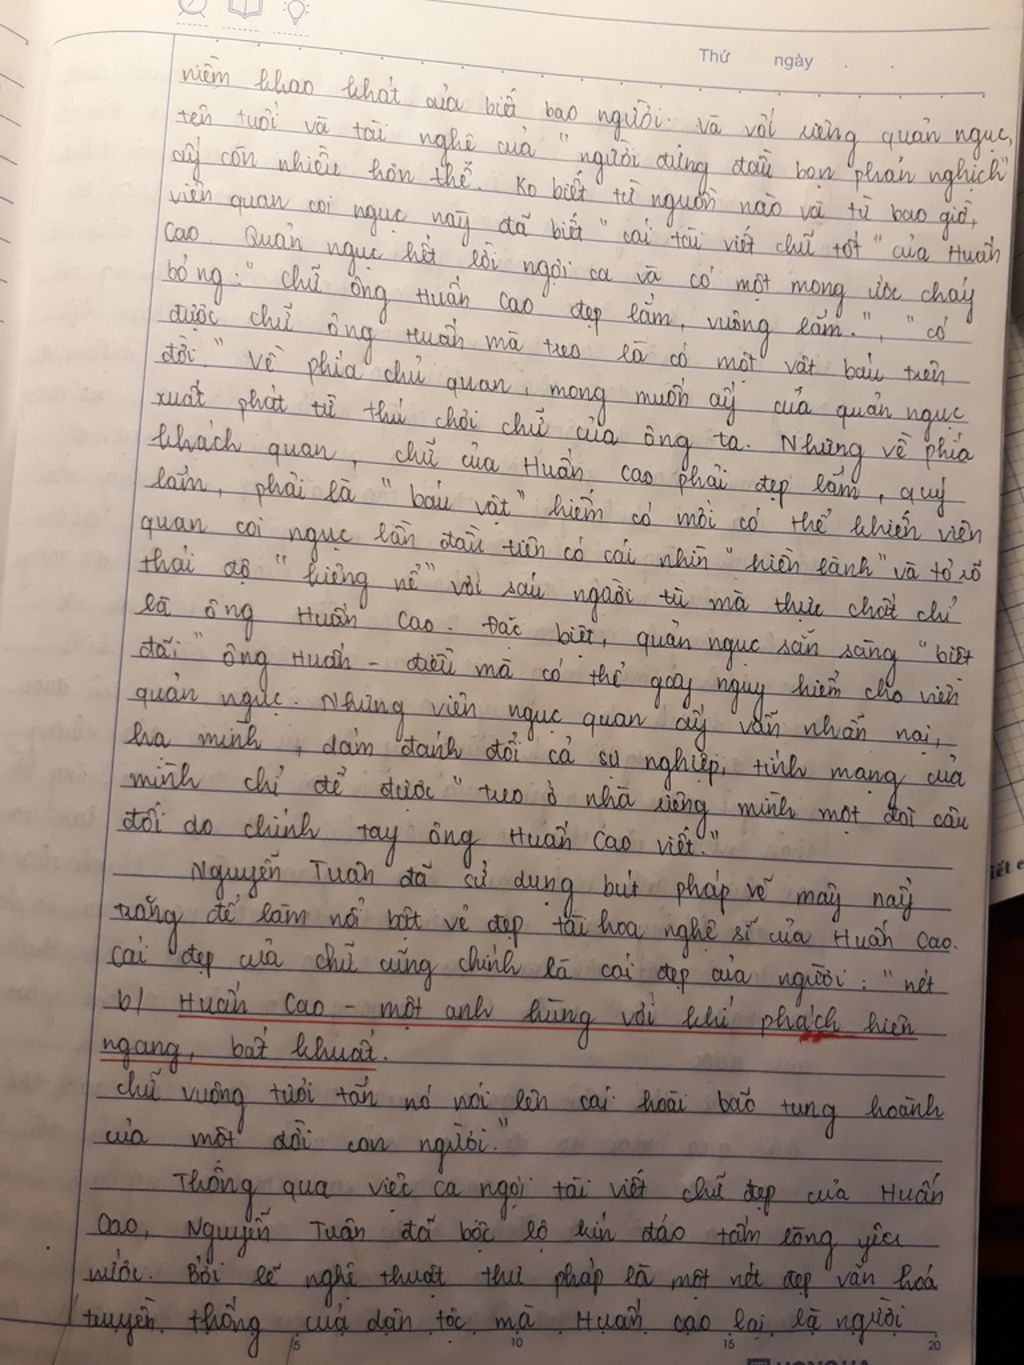 Thứ ngày
niềm khao khát của biết bao người. Và với riêng quản ngục,
tên tuổi và tài nghệ của "người đứng đầu bọn phản nghịch"
ấy còn nhiều hơn thế. Ko biết từ nguồn nào và từ bao giờ,
viên quan coi ngục này đã biết "cái tài viết chữ tốt" của Huấn
Cao. Quản ngục hết lời ngợi ca và có một mong ước cháy
bỏng: "chữ ông Huấn Cao đẹp lắm, vuông lắm.", "có
được chữ ông Huấn mà treo là có một vật báu trên
đời." Về phía chủ quan, mong muốn ấy của quản ngục
xuất phát từ thú chơi chữ của ông ta. Nhưng về phía
khách quan, chữ của Huấn Cao phải đẹp lắm, quý
lắm, phải là "báu vật" hiếm có mới có thể khiến viên
quan coi ngục lần đầu tiên có cái nhìn "hiền lành" và tỏ rõ
thái độ "kiêng nể" với sáu người tù mà thực chất chỉ
là ông Huấn Cao. Đặc biệt, quản ngục sẵn sàng "biệt
đãi" ông Huấn - điều mà có thể gây nguy hiểm cho viên
quản ngục. Nhưng viên ngục quan ấy vẫn nhẫn nại,
hạ mình, dám đánh đổi cả sự nghiệp, tính mạng của
mình chỉ để được "treo ở nhà riêng mình một đôi câu
đối do chính tay ông Huấn Cao viết."
Nguyễn Tuân đã sử dụng bút pháp vẽ mây nảy
trăng để làm nổi bật vẻ đẹp tài hoa nghệ sĩ của Huấn Cao.
Cái đẹp của chữ cũng chính là cái đẹp của người: "nét
b/ Huấn Cao - một anh hùng với khí phách hiên
ngang, bất khuất.
chữ vuông tươi tắn nó nói lên cái hoài bão tung hoành
của một đời con người."
Thông qua việc ca ngợi tài viết chữ đẹp của Huấn
Cao, Nguyễn Tuân đã bộc lộ kín đáo tấm lòng yêu
nước. Bởi lẽ nghệ thuật thư pháp là một nét đẹp văn hoá
truyền thống của dân tộc mà Huấn Cao lại là người
5 10 15 20